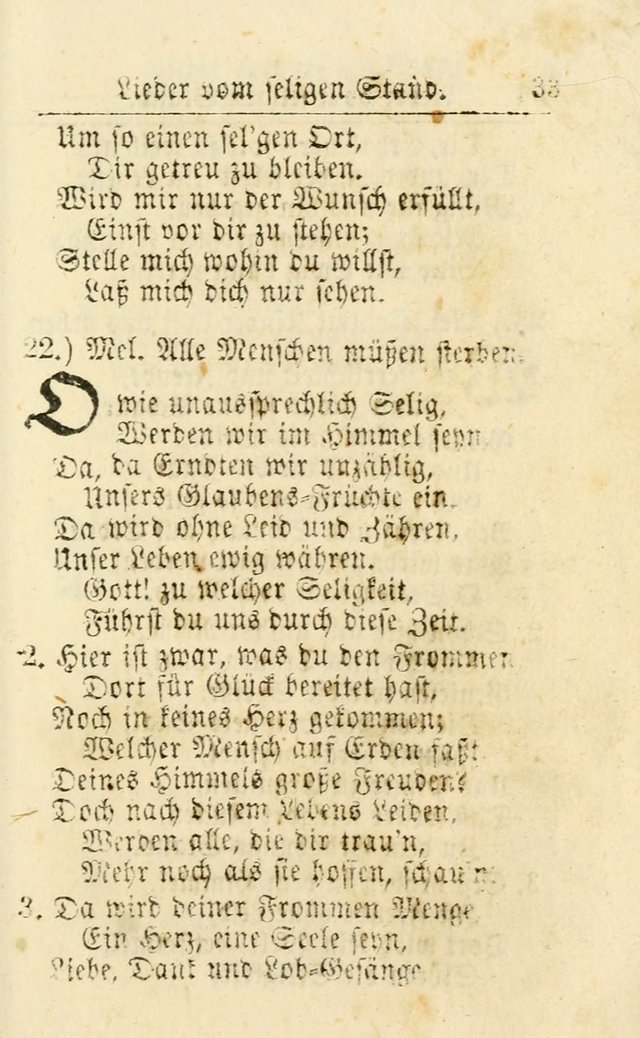 Lieder vom seligen Stand. 33
Um so einen sel'gen Ort,
Dir getreu zu bleiben.
Wird mir nur der Wunsch erfüllt,
Einst vor dir zu stehen;
Stelle mich wohin du willst,
Laß mich dich nur sehen.
22.) Mel. Alle Menschen müßen sterben.
O wie unaussprechlich Selig,
Werden wir im Himmel seyn
Da, da Erndten wir unzählig,
Unsers Glaubens-Früchte ein.
Da wird ohne Leid und Zähren,
Unser Leben ewig währen.
Gott! zu welcher Seligkeit,
Führst du uns durch diese Zeit.
2. Hier ist zwar, was du den Frommen
Dort für Glück bereitet hast,
Noch in keines Herz gekommen;
Welcher Mensch auf Erden faßt
Deines Himmels große Freuden?
Doch nach diesem Lebens Leiden,
Werden alle, die dir trau'n,
Mehr noch als sie hoffen, schau'n.
3. Da wird deiner Frommen Menge
Ein Herz, eine Seele seyn,
Liebe, Dank und Lob-Gesänge